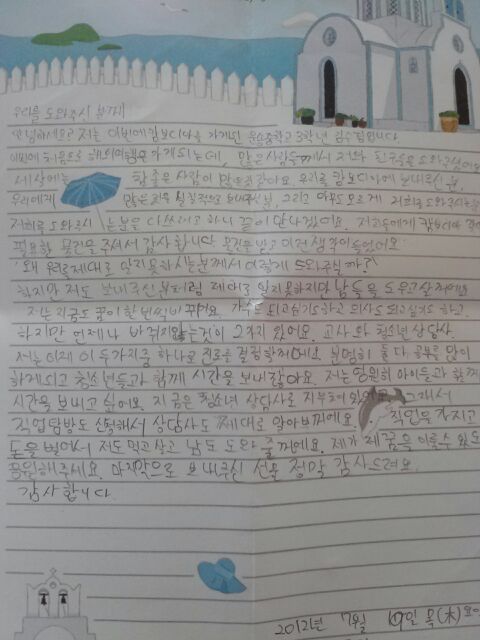 우리를 도와주신 분께
안녕하세요? 저는 이번에 캄보디아를 가게된 중학교 3학년 입니다
이번에 처음으로 해외여행을 가게되는데, 많은 사람들께서 저와 친구들을 도와주셨어요
세상에는 참 좋은 사람이 많은것 같아요. 우리를 캄보디아에 보내주신 분,
우리에게 많은 것을 보내주신 분, 그리고 아무도 모르게 저희를 도와주시는 분
저희를 도와주시는 분을 다 쓰려고 하니 끝이 안나겠어요. 저희들에게 캄보디아
필요한 물건을 주셔서 감사합니다. 물건을 받고 이런 생각이 들었어요.
'왜 우릴 제대로 알지 못하시는 분께서 이렇게 도와주실까?'
하지만 저도 보내주신 분처럼 제대로 알지 못하지만 남들을 도우고 살거에요
저는 지금도 꿈이 한 번씩 바뀌어요. 가수도 되고싶기도하고 의사도 되고싶기도 하고.
하지만 언제나 바뀌지 않는 것이 2가지 있어요. 교사와 청소년 상담사.
저는 이제 이 두가지중 하나로 진로를 결정할거에요. 분명히 둘 다 공부를 많이
하게되고 청소년들과 함께 시간을 보내잖아요. 저는 영원히 아이들과 함께
시간을 보내고 싶어요. 지금은 청소년 상담사로 있어요. 그래서
직업탐방도 신청해서 상담사도 제대로 알아봐꺼에요. 직업을 가지고
돈을 벌어서 저도 먹고 살고 남도 도와 줄꺼에요. 제가 제 꿈을 이룰수 있도록
응원해주세요. 마지막으로 보내주신 선물 정말 감사드려요.
감사합니다.
2012년 7월 일 목(木)요일